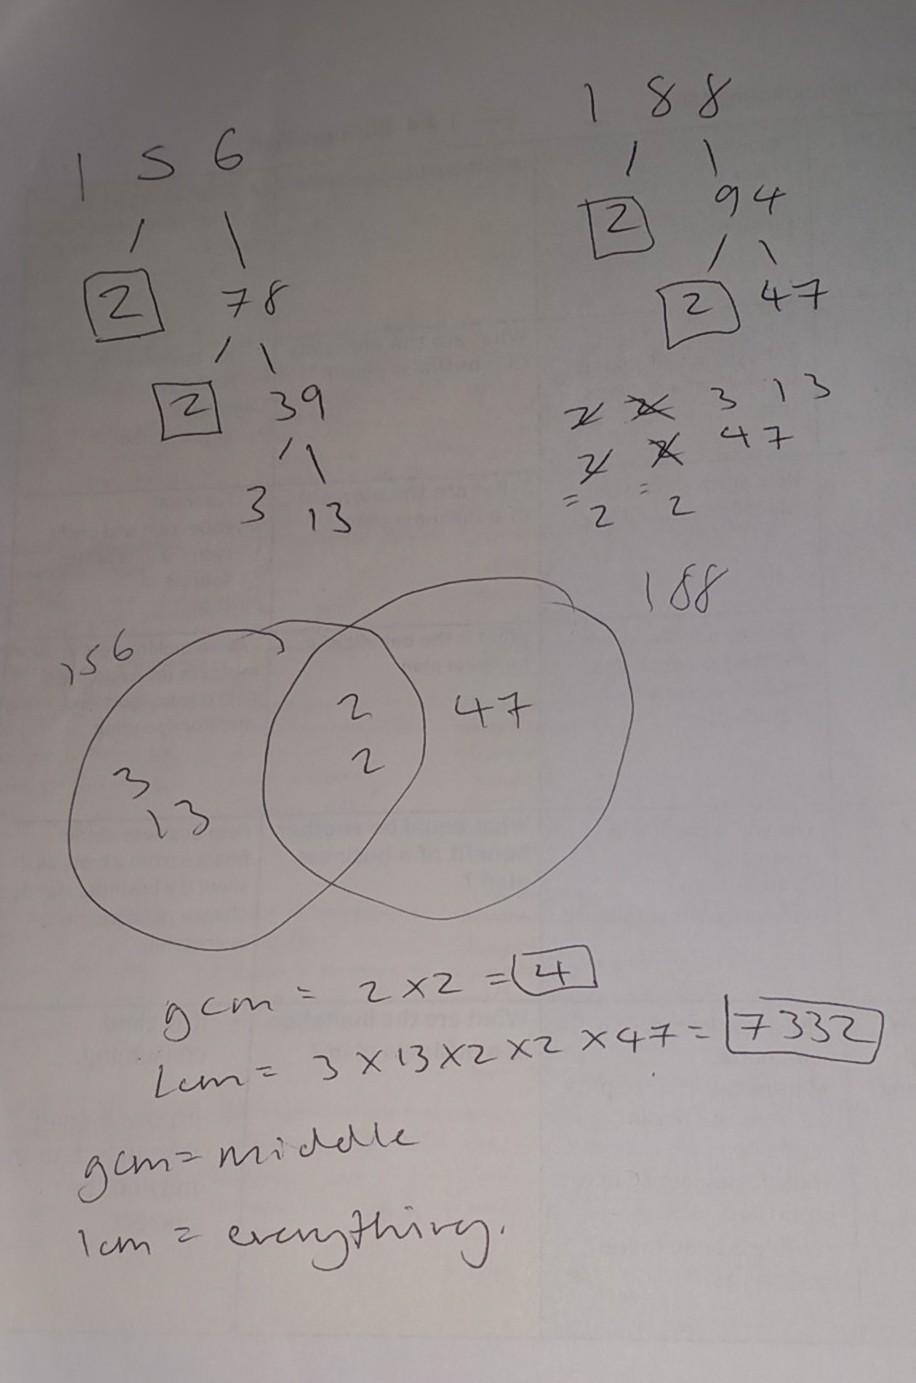 1 5 6
2 78
2 39
3 13
1 8 8
2 94
2 47
2 2 3 13
2 2 47
= =
2 2
156
188
2
2
47
3
13
gcm = 2 x 2 = 4
Lcm = 3 x 13 x 2 x 2 x 47 = 7332
gcm = middle
lcm = everything.